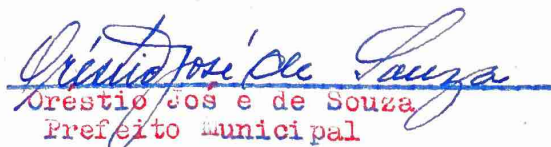 Oréstio José de Souza
Orestio Jos e de Souza
Prefeito Municipal